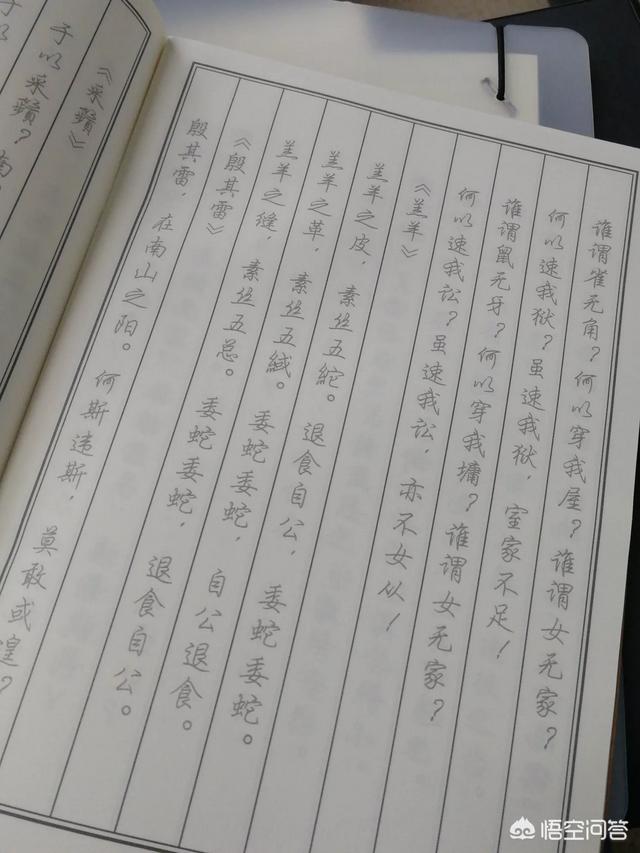 谁谓雀无角？何以穿我屋？谁谓女无家？
何以速我狱？虽速我狱，室家不足！
谁谓鼠无牙？何以穿我墉？谁谓女无家？
何以速我讼？虽速我讼，亦不女从！
《羔羊》
羔羊之皮，素丝五紽。退食自公，委蛇委蛇。
羔羊之革，素丝五緎。委蛇委蛇，自公退食。
羔羊之缝，素丝五总。委蛇委蛇，退食自公。
《殷其雷》
殷其雷，在南山之阳。何斯违斯，莫敢或遑？
《采蘋》
于以采蘋？南
悟空问答